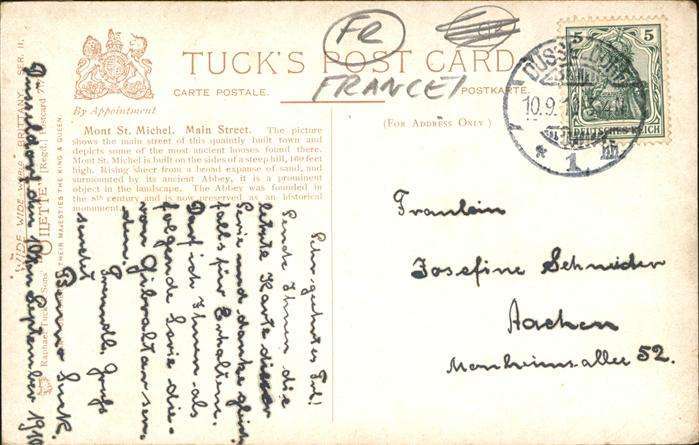 WIDE WIDE WORLD BRITTANY, SER. II.
"OILETTE" [Regd.] Postcard 7
Raphael Tuck & Sons'
THEIR MAJESTIES THE KING & QUEEN.
TUCK'S POST CARD
CARTE POSTALE.
POSTKARTE.
By Appointment
(FOR ADDRESS ONLY)
FR
FRANCE
Mont St. Michel. Main Street. The picture
shows the main street of this quaintly built town and
depicts some of the most ancient houses found there.
Mont St. Michel is built on the sides of a steep hill, 160 feet
high. Rising sheer from a broad expanse of sand, and
surmounted by its ancient Abbey, it is a prominent
object in the landscape. The Abbey was founded in
the 8th century and is now preserved as an historical
monument.
5 5
DEUTSCHES REICH
DÜSSELDORF
10.9.10
* 1 m
Fräulein
Josefine Schneider
Aachen
Monheimsallee 52.
Düsseldorf den 10ten September 1910
Sehr geehrtes Frl!
Sende Ihnen die
letzte Karte dieser
Serie und danke gleich
falls für Erhaltene.
Darf ich Ihnen als
folgende Serie die
von Gibraltar sen
den.
Freundl. Gruss
sendet